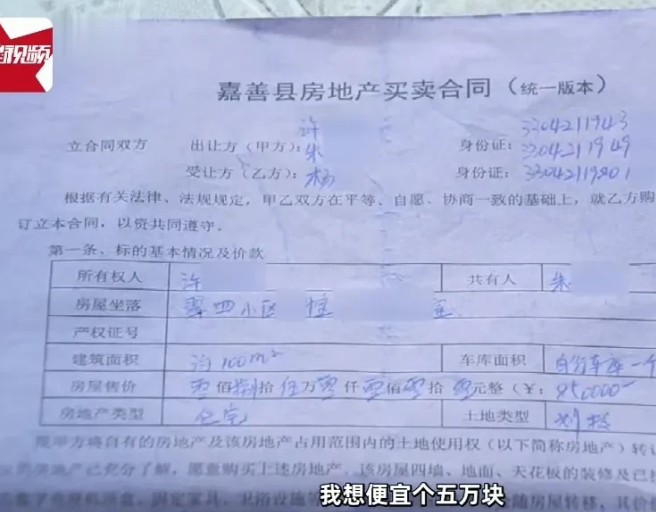 视频
嘉善县房地产买卖合同（统一版本）
立合同双方 出让方（甲方）：许 身份证：3304211943
朱 3304211949
受让方（乙方）：杨 身份证：3304211201
根据有关法律、法规规定，甲乙双方在平等、自愿、协商一致的基础上，就乙方购
订立本合同，以资共同遵守。
第一条、标的基本情况及价款
所有权人 许 共有人 朱
房屋坐落 小区 幢 室
产权证号
建筑面积 约100m² 车库面积 自行车库一个
房屋售价 零佰捌拾伍万零仟零佰零拾零元整（¥： 850000
房地产类型 住宅 土地类型 划拨
甲方将自有的房地产及该房地产占用范围内的土地使用权（以下简称房地产）转
充分了解，愿意购买上述房地产。该房屋四墙、地面、天花板的装修及已
固定家具、卫浴设施 随房屋转移，其价
我想便宜个五万块